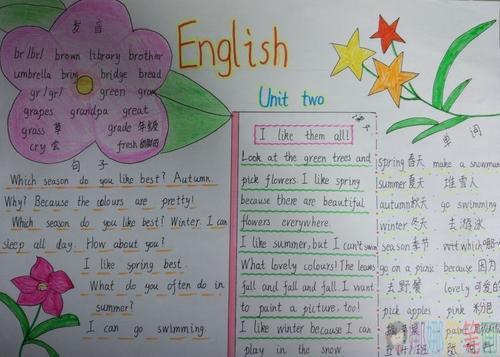 English
Unit two
发音
br/br/ brown library brother
umbrella bring bridge bread
gr/gr/ green grass
grapes grandpa great
grass 草 grade 年级
cry 哭 fresh 新鲜的
句子
Which season do you like best? Autumn.
Why? Because the colours are pretty!
Which season do you like best? Winter. I can
sleep all day. How about you?
I like spring best.
What do you often do in
summer?
I can go swimming.
I like them all!
Look at the green trees and
pick flowers I like spring
because there are beautiful
flowers everywhere.
I like summer, but I can't swim
What lovely colours! The leaves
fall and fall and fall. I want
to paint a picture, too!
I like winter because I can
play in the snow.
单词
spring 春天 make a snowman
summer 夏天 堆雪人
autumn 秋天 go swimming
winter 冬天 去游泳
season 季节 which
go on a picnic because 因为
去野餐 lovely 可爱的
pick apples pink 粉色
摘苹果